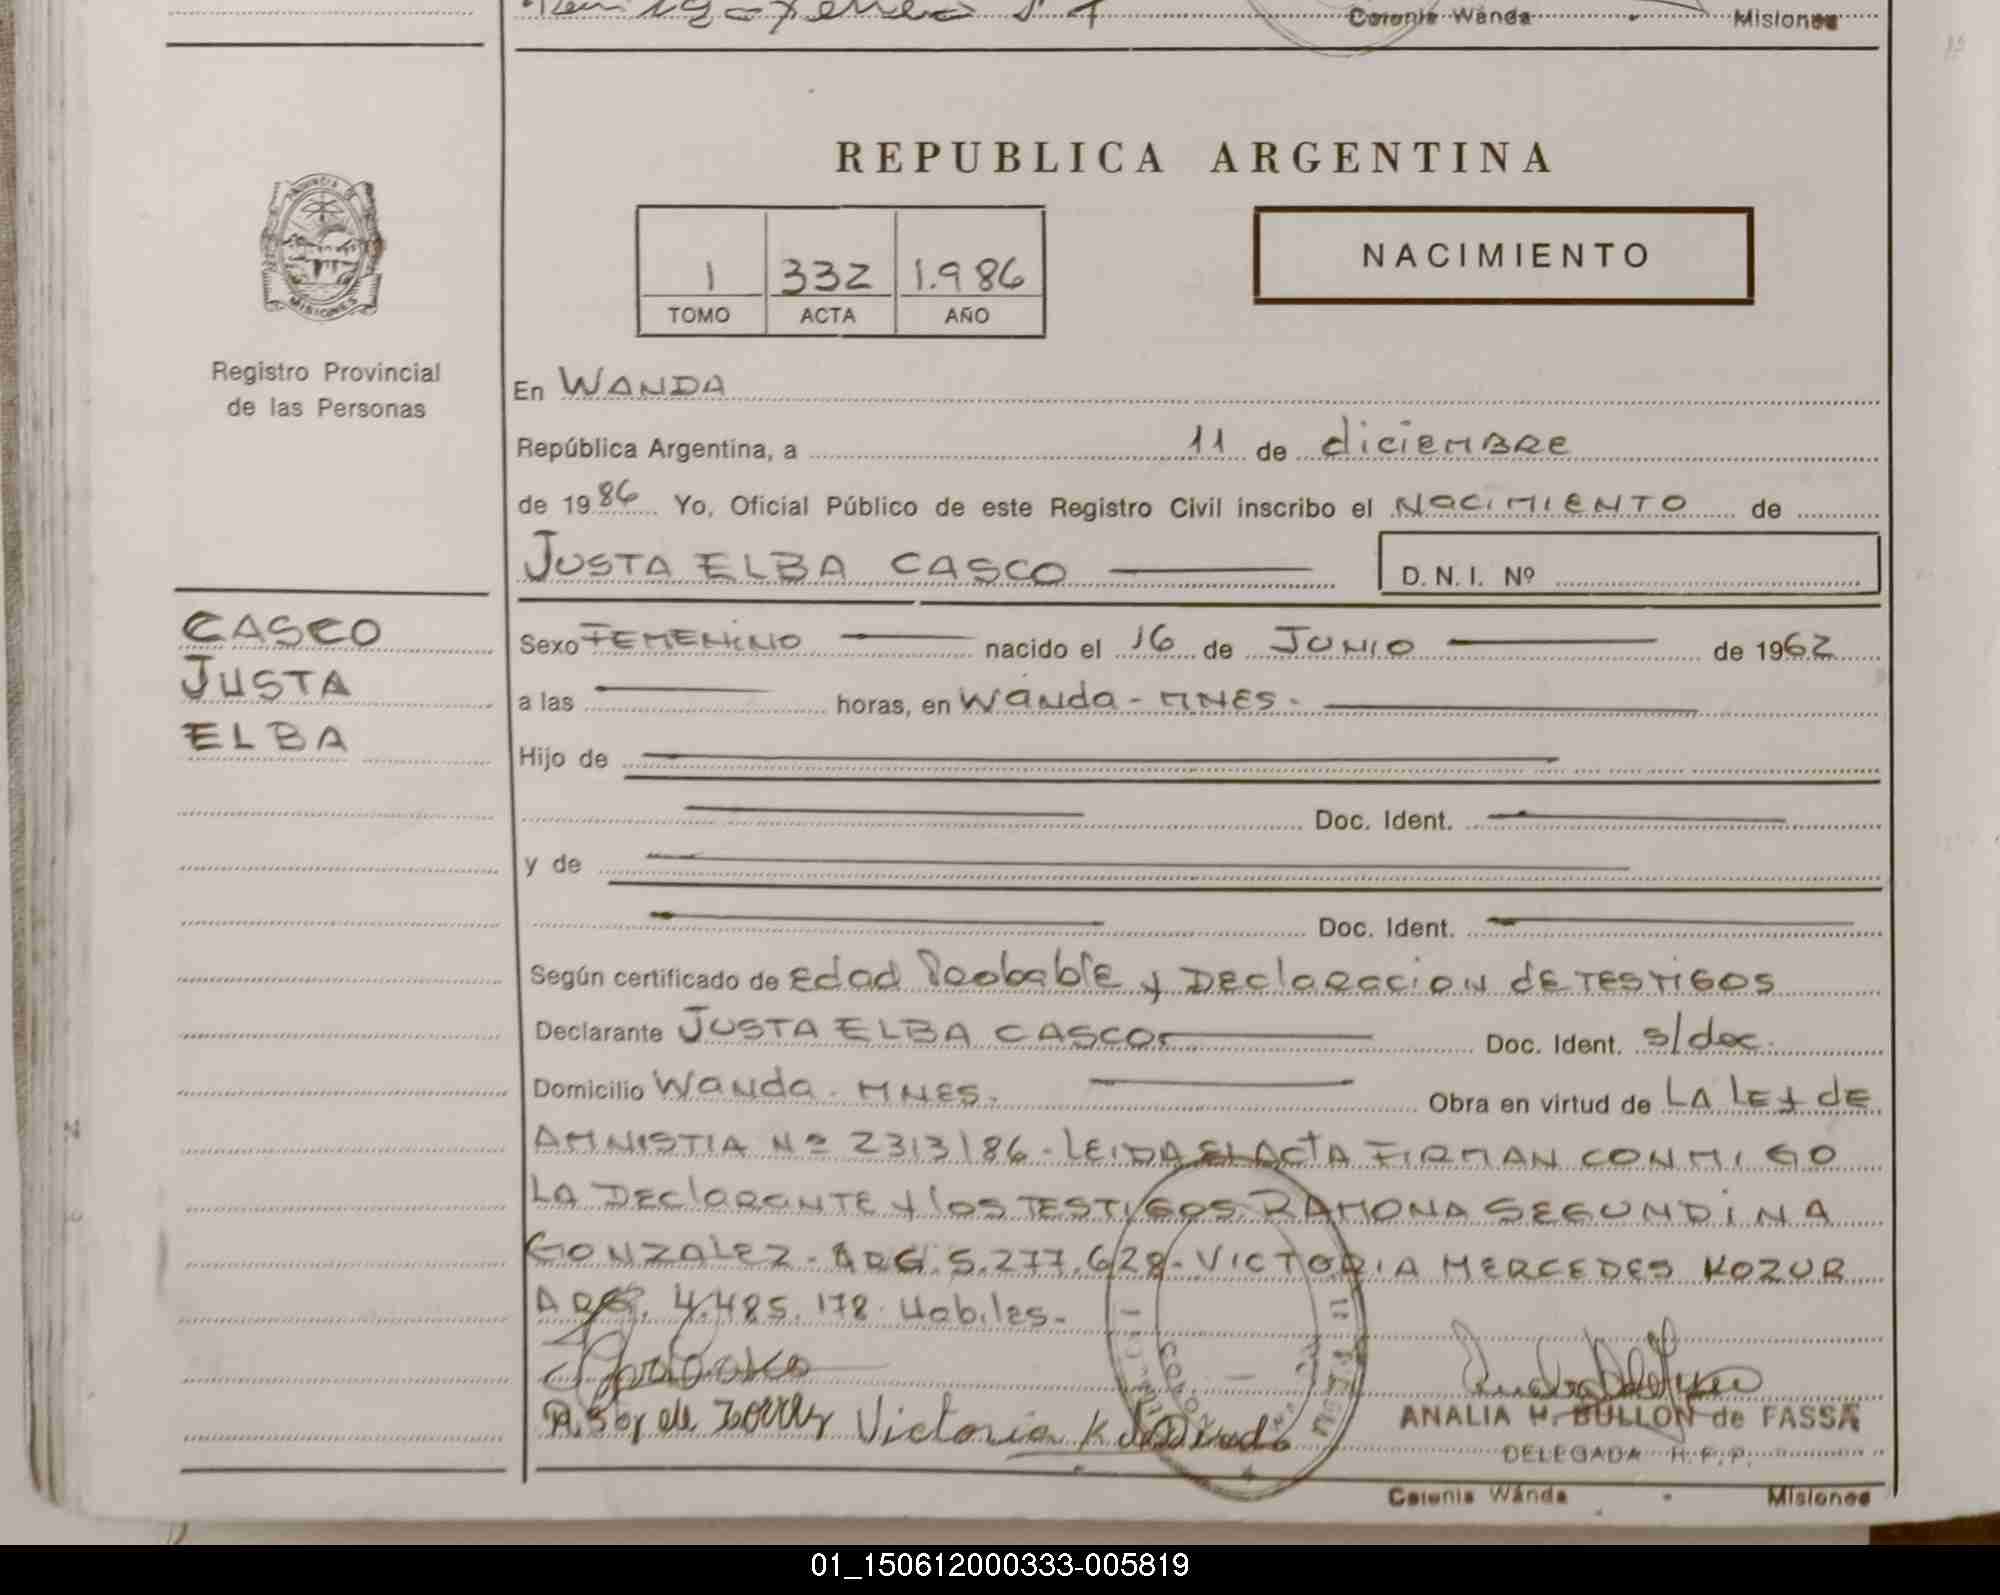 Colonia Wanda Misiones
REPUBLICA ARGENTINA
NACIMIENTO
1 332 1.986
TOMO ACTA AÑO
Registro Provincial
de las Personas
En WANDA
República Argentina, a 11 de diciembre
de 1986 Yo, Oficial Público de este Registro Civil inscribo el NACIMIENTO de
JUSTA ELBA CASCO
D. N. I. Nº
CASCO
JUSTA
ELBA
Sexo FEMENINO nacido el 16 de JUNIO de 1962
a las horas, en Wanda - MNES.
Hijo de
Doc. Ident.
y de
Doc. Ident.
Según certificado de edad Probable y Declaracion de TESTIGOS
Declarante JUSTA ELBA CASCO Doc. Ident. s/doc.
Domicilio Wanda - MNES. Obra en virtud de LA LEY dE
AMNISTIA Nº 2313/86 - LEIDA EL ACTA FIRMAN CONMIGO
LA DEClARANTE y los TESTIGOS RAMONA SEGUNDINA
GONZALEZ - ARG. 5.277.628 - VICTORIA MERCEDES KOZUR
ARG. 4.485.178 Habiles.
Victoria K de
ANALIA H. BULLON de FASSA
DELEGADA R.P.P.
Colonia Wanda Misiones
01_150612000333-005819